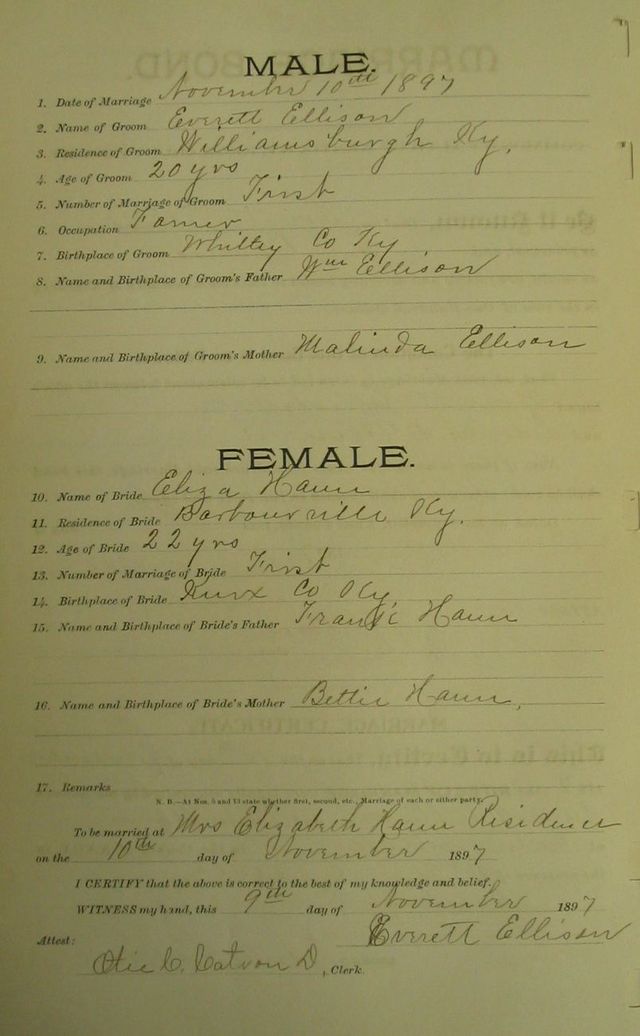 MALE.
1. Date of Marriage November 10th 1897
2. Name of Groom Everett Ellison
3. Residence of Groom Williamsburgh Ky.
4. Age of Groom 20 yrs
5. Number of Marriage of Groom First
6. Occupation Farmer
7. Birthplace of Groom Whitley Co Ky
8. Name and Birthplace of Groom's Father Wm Ellison
9. Name and Birthplace of Groom's Mother Malinda Ellison
FEMALE.
10. Name of Bride Eliza Haun
11. Residence of Bride Barbourville Ky.
12. Age of Bride 22 yrs
13. Number of Marriage of Bride First
14. Birthplace of Bride Knox Co Ky
15. Name and Birthplace of Bride's Father Haun
16. Name and Birthplace of Bride's Mother Bettie Haun,
17. Remarks
N. B.—At Nos. 5 and 13 state whether first, second, etc., Marriage of each or either party.
To be married at Mrs Elizabeth Haun Residence
on the 10th day of November 1897
I CERTIFY that the above is correct to the best of my knowledge and belief.
WITNESS my hand, this 9th day of November 1897
Everett Ellison
Attest:
D, Clerk.